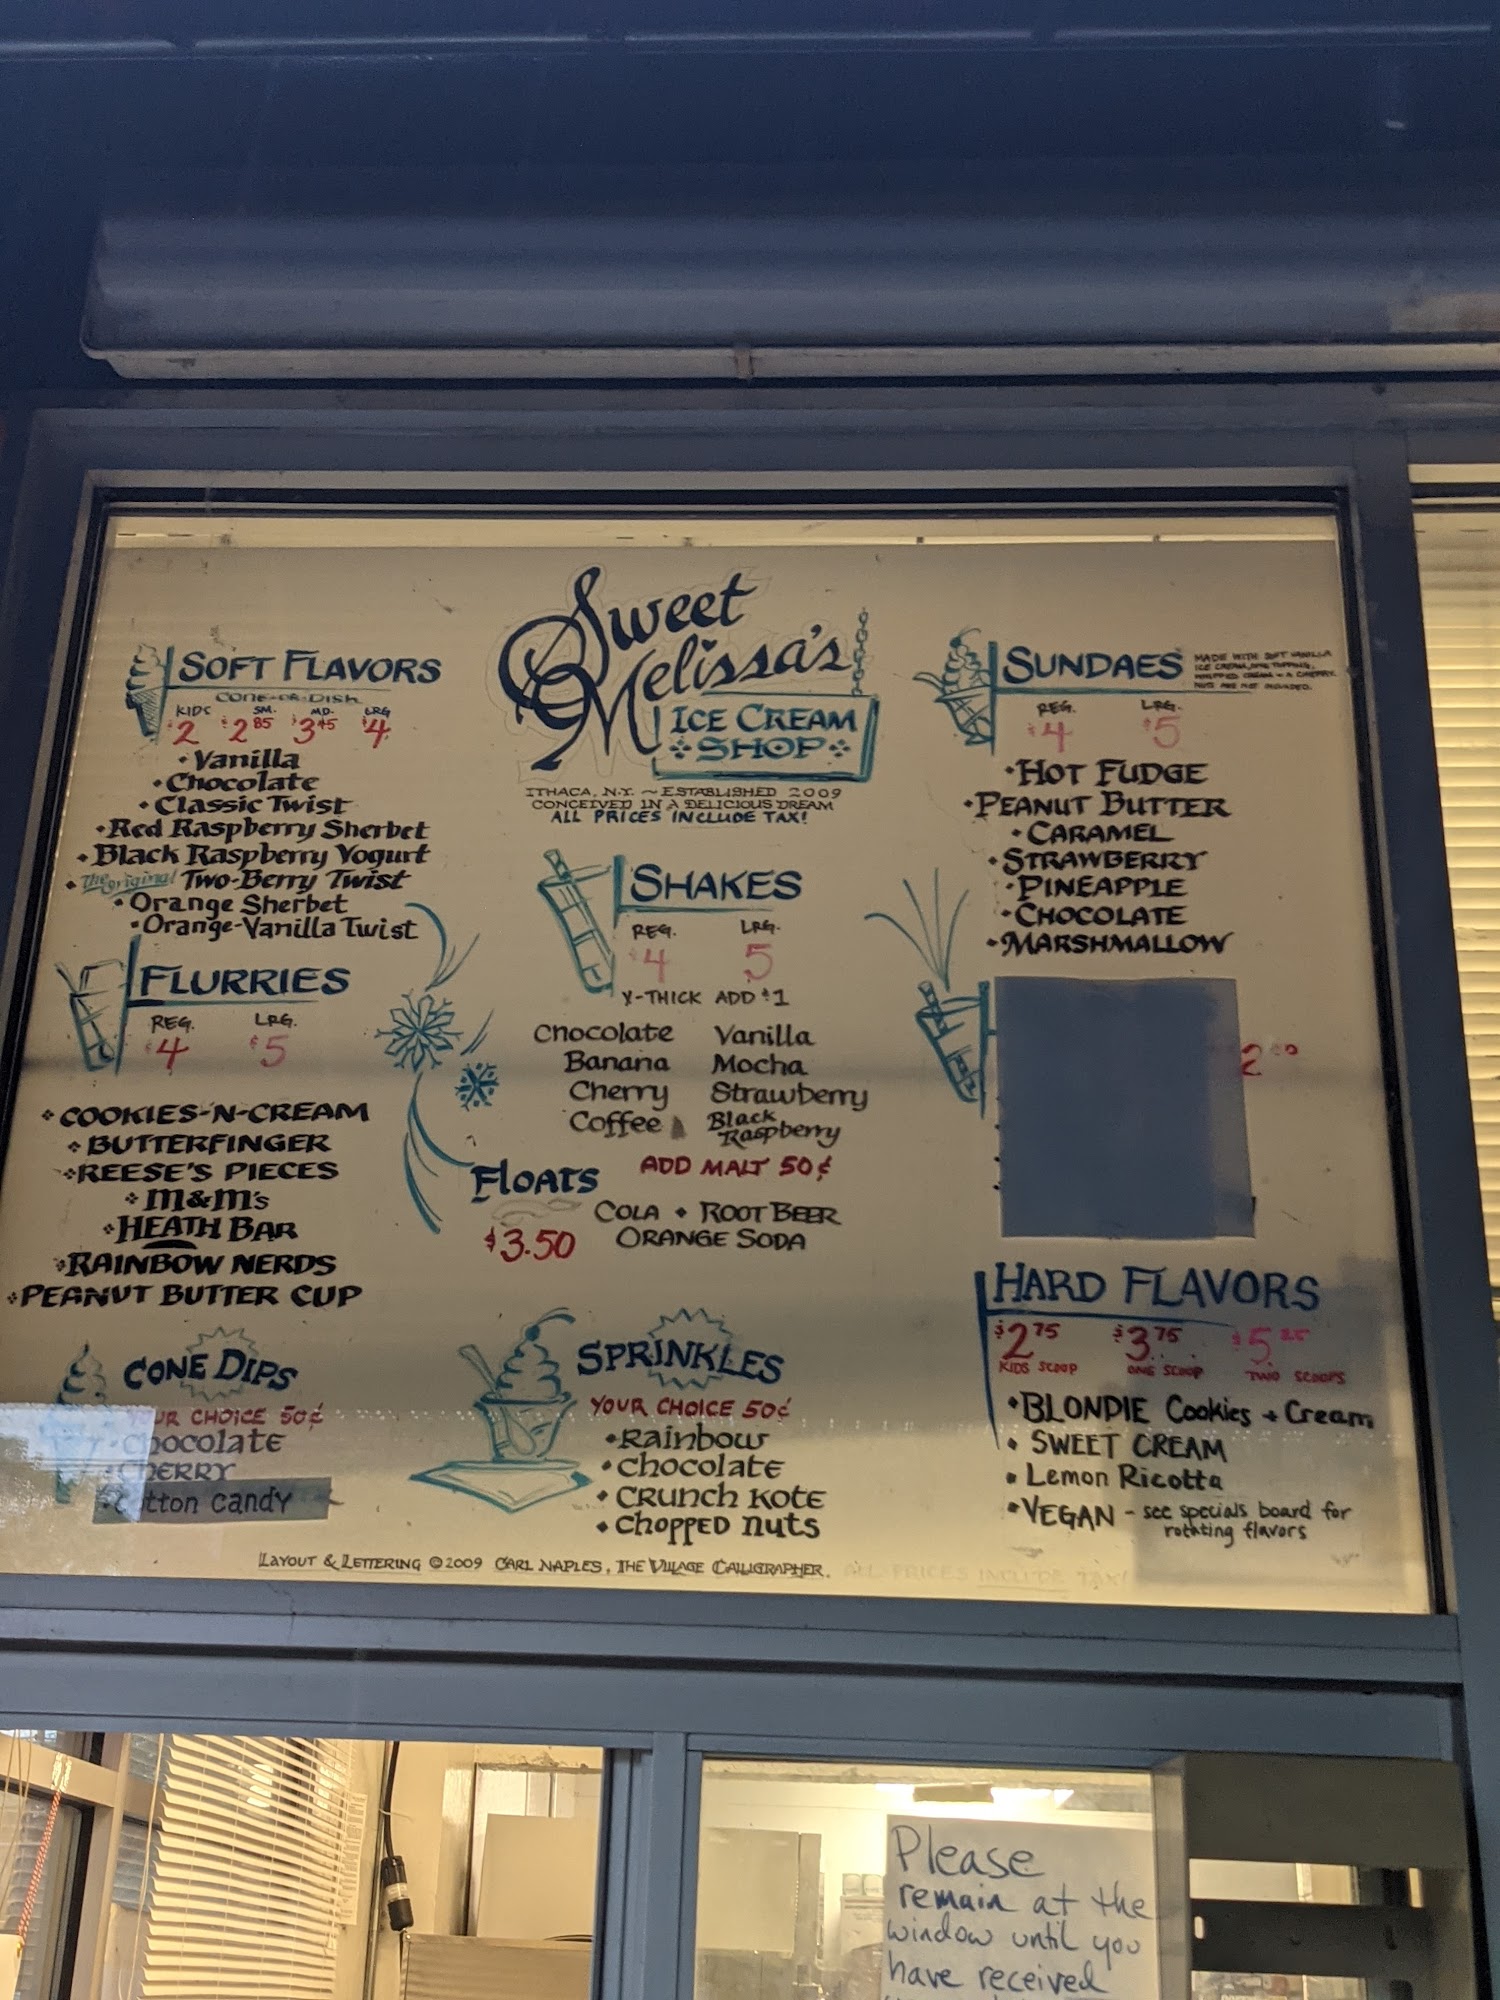 Sweet
Melissa's
ICE CREAM
SHOP
ITHACA, N.Y. ~ ESTABLISHED 2009
CONCEIVED IN A DELICIOUS DREAM
ALL PRICES INCLUDE TAX!
SOFT FLAVORS
CONE-OR-DISH
KIDS SM. MD. LRG
$2 $2.85 $3.45 $4
• Vanilla
• Chocolate
• Classic Twist
• Red Raspberry Sherbet
• Black Raspberry Yogurt
• The original Two-Berry Twist
• Orange Sherbet
• Orange-Vanilla Twist
FLURRIES
REG. LRG.
$4 $5
COOKIES-N-CREAM
BUTTERFINGER
REESE'S PIECES
M&M's
HEATH BAR
RAINBOW NERDS
PEANUT BUTTER CUP
CONE DIPS
YOUR CHOICE 50¢
• Chocolate
• CHERRY
Cotton Candy
SHAKES
REG. LRG.
$4 5
X-THICK ADD $1
Chocolate Vanilla
Banana Mocha
Cherry Strawberry
Coffee Black Raspberry
ADD MALT 50¢
FLOATS
$3.50
COLA • ROOT BEER
ORANGE SODA
SPRINKLES
YOUR CHOICE 50¢
• Rainbow
• Chocolate
• CRUNCH KOTE
• CHOPPED nuts
SUNDAES
MADE WITH SOFT VANILLA
ICE CREAM, ONE TOPPING,
WHIPPED CREAM + A CHERRY.
NUTS ARE NOT INCLUDED.
REG. LRG.
$4 $5
• HOT FUDGE
• PEANUT BUTTER
• CARAMEL
• STRAWBERRY
• PINEAPPLE
• CHOCOLATE
• MARSHMALLOW
HARD FLAVORS
$2.75 $3.75 $5.25
KIDS SCOOP ONE SCOOP TWO SCOOPS
• BLONDIE Cookies + Cream
• SWEET CREAM
• Lemon Ricotta
• VEGAN - see specials board for
rotating flavors
LAYOUT & LETTERING © 2009 CARL NAPLES, THE VILLAGE CALLIGRAPHER.
ALL PRICES INCLUDE TAX!
Please
remain at the
window until you
have received